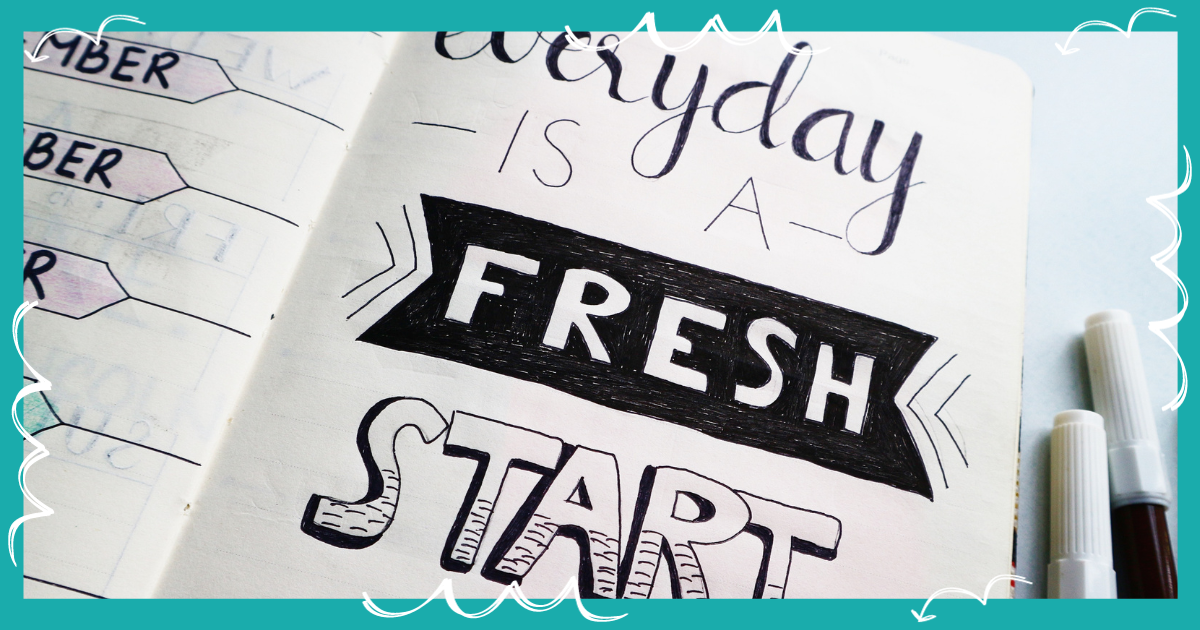 MBER
BER
R
everyday
IS
A
FRESH
START